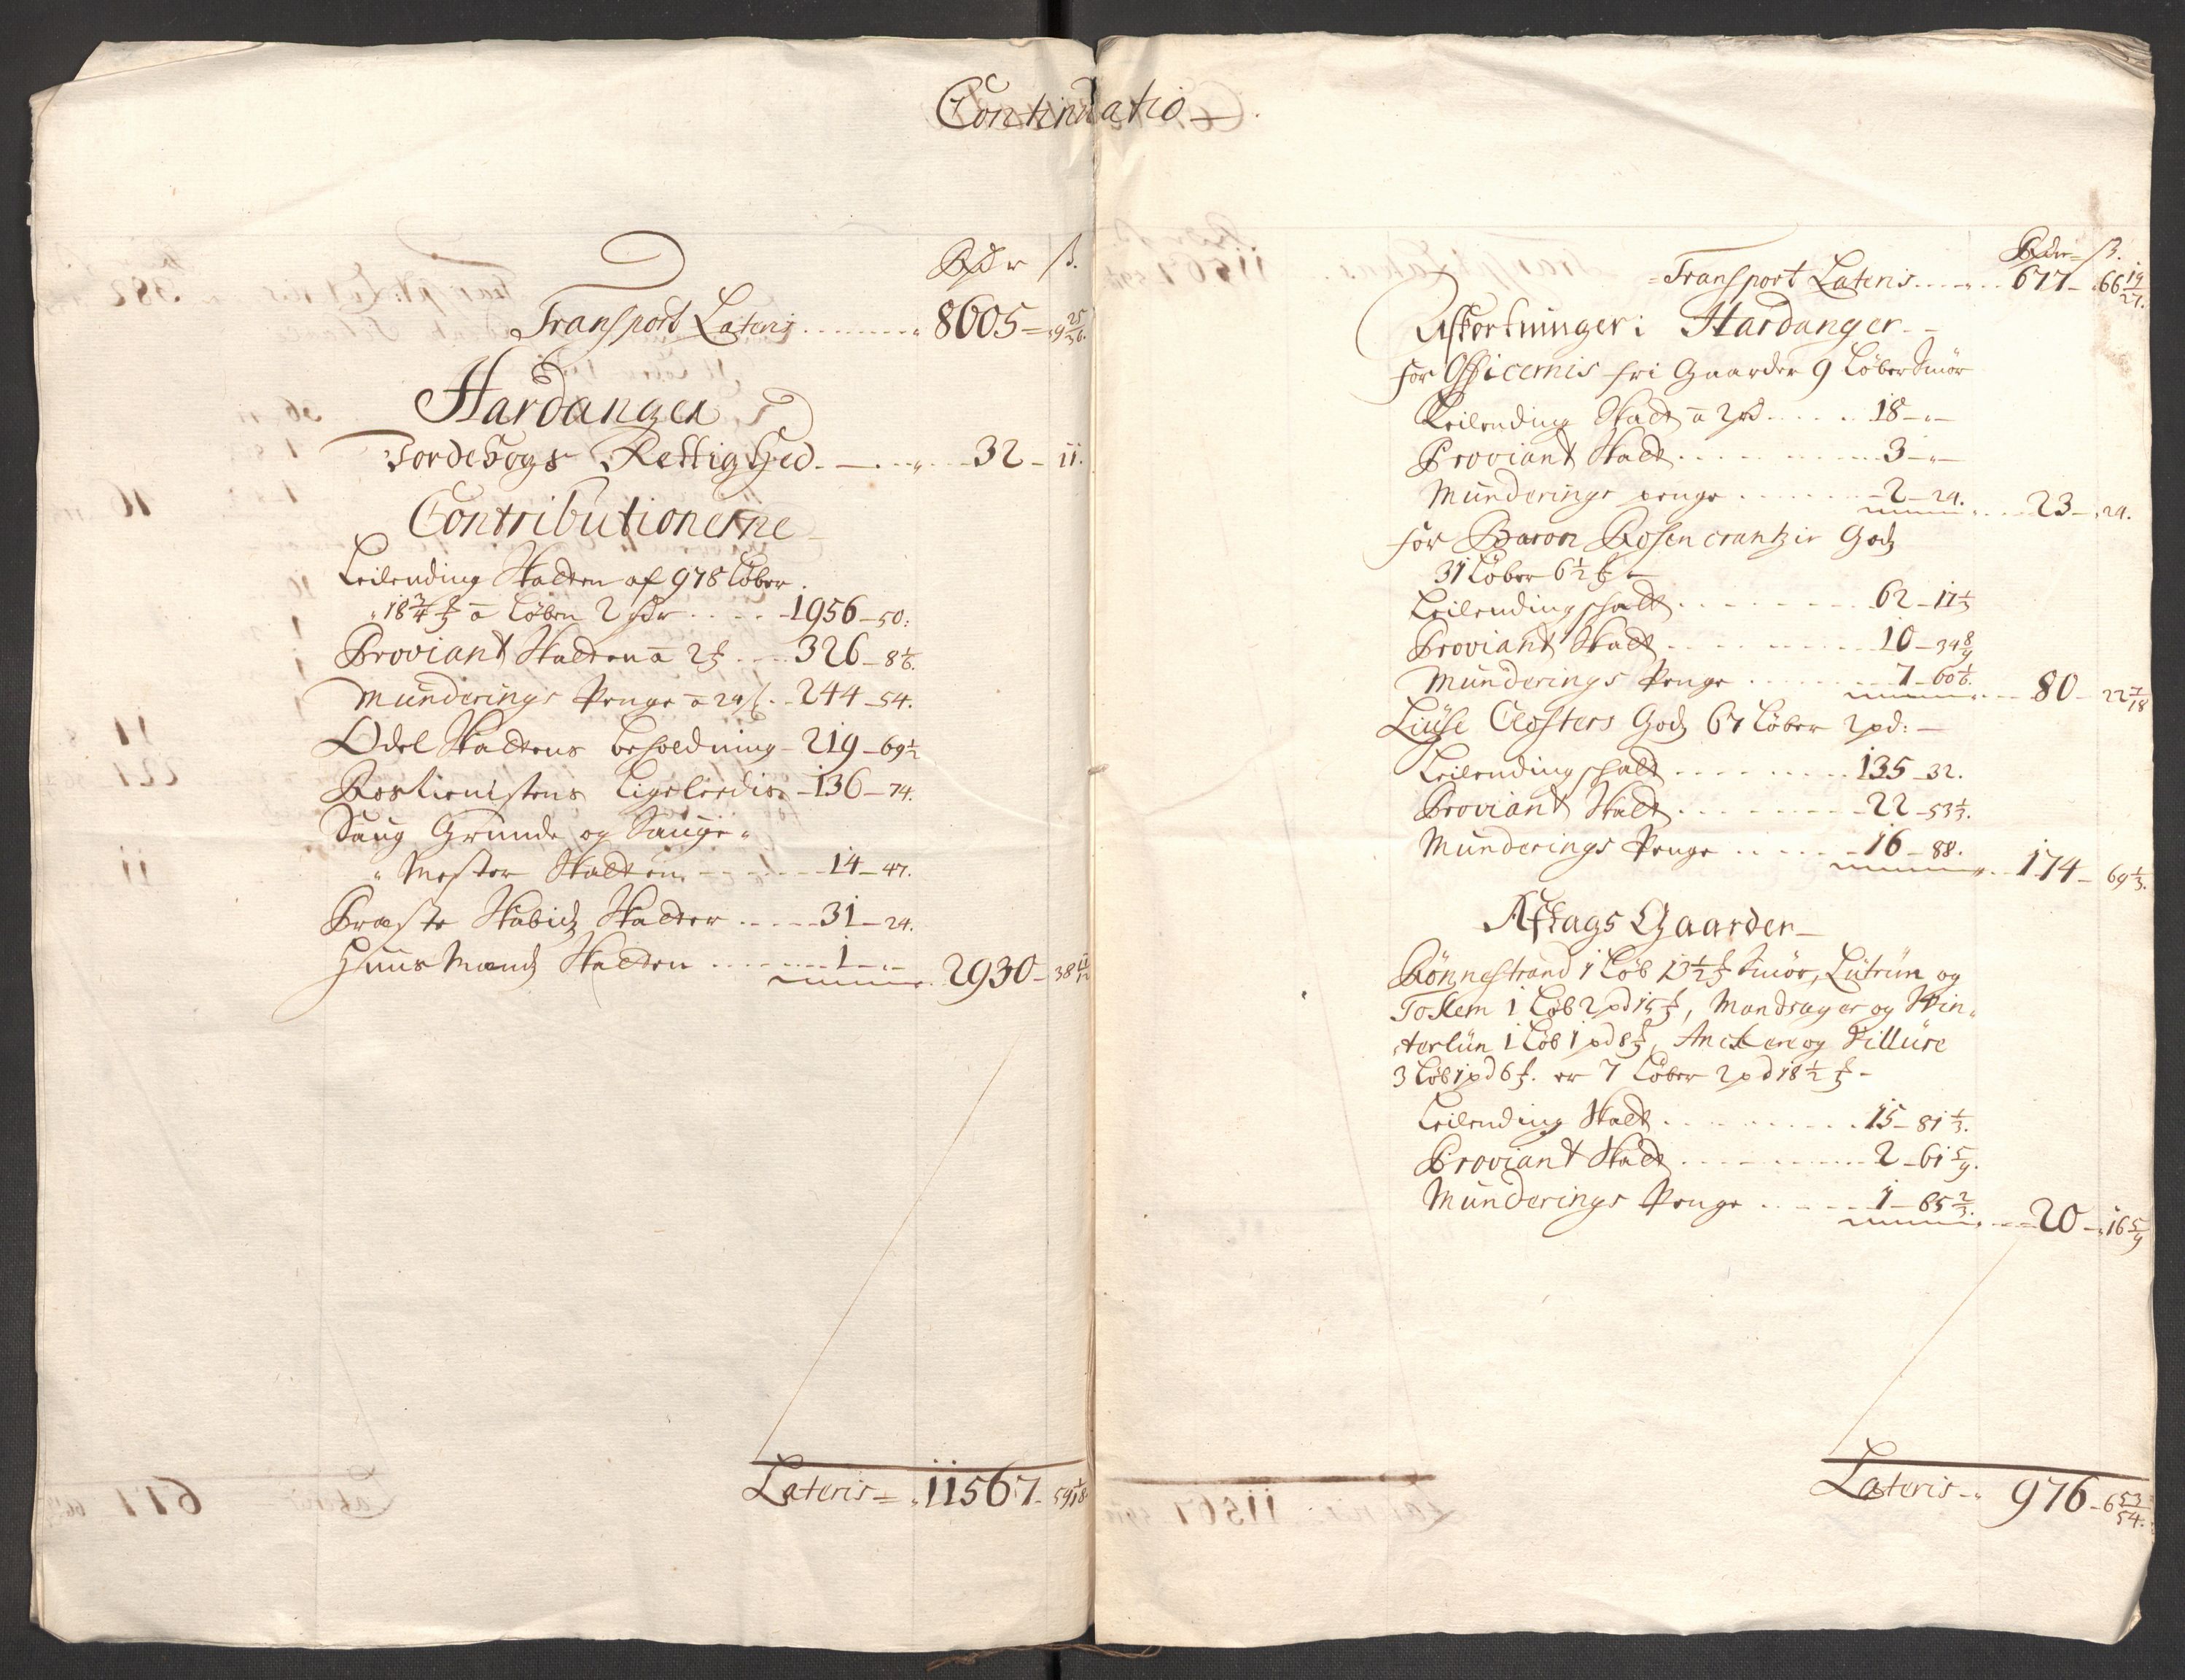 Continuatio
Rdr ß.
Transport Lateris 8605 9 25/36.
Hardanger
Jordebogs Rettighed 32 11.
Contributionerne
Leilending Skatten af 978 Løber
18 3/4 ℔ a Løben 2 Rdr 1956 50:
Proviant Skatten a 2 ℔ 326 8 1/6.
Munderings Penge a 24 ß 244 54.
Odel Skattens beholdning 219 69 1/2
Rostienistens Ligeledis 136 74.
Saug Grunde og Sauge
Mester Skatten 14 47.
Præste Skatter 31 24.
Huusmands Skatten 1
2930 38 11/12
Lateris 11567 59 1/18
Rdr ß.
Transport Lateris 677 66 19/27.
Afkortninger i Hardanger
for Officernis fri Gaarder 9 Løber Smør
Leilending Skatt a 2 rd 18
Proviant Skatt 3
Munderings penge 2 24. 23 24.
for Baron Rosencrantzis Gods
31 Løber 6 1/2 ℔
Leilending schatt 62 11 1/3
Proviant Skatt 10 34 8/9
Munderings Penge 7 60 1/6. 80 22 7/18
Liuse Closters Gods 67 Løber 2 pd:
Leilending schatt 135 32.
Proviant Skatt 22 53 1/3.
Munderings Penge 16 88. 174 69 1/3.
Aftags Gaarder
Rønnestrand 1 Løb 13 1/2 ℔ Smør, Lutrun og
Tokem 1 Løb 2 pd 15 ℔, Mandsager og Win
terlün 1 Løb 1 pd 8 ℔, Anckere og Sillure
3 Løb 1 pd 6 ℔. er 7 Løber 2 pd 18 1/2 ℔
Leilending Skatt 15 81 1/3.
Proviant Skatt 2 61 5/9.
Munderings Penge 1 65 2/3. 20 16 5/9
Lateris 976 6 53/54.